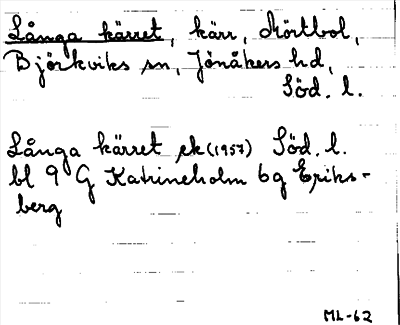 Långa kärret, kärr, Mörtbol,
Björkviks sn, Jönåkers hd,
Söd. l.
Långa kärret, ek (1957) Söd. l.
bl 9 G Katrineholm 6g Eriks-
berg
ML-62